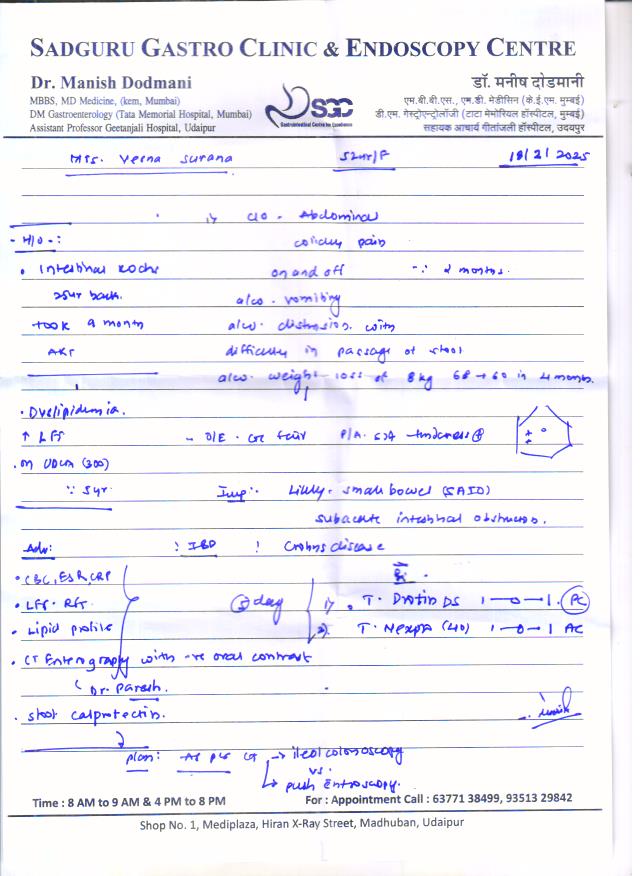 SADGURU GASTRO CLINIC & ENDOSCOPY CENTRE
Dr. Manish Dodmani
MBBS, MD Medicine, (kem, Mumbai)
DM Gastroenterology (Tata Memorial Hospital, Mumbai)
Assistant Professor Geetanjali Hospital, Udaipur
SGC
Gastrointestinal Centre for Excellence
डॉ. मनीष दोडमानी
एम.बी.बी.एस., एम.डी. मेडीसिन (के.ई.एम. मुम्बई)
डी.एम. गेस्ट्रोएन्ट्रोलॉजी (टाटा मेमोरियल हॉस्पीटल, मुम्बई)
सहायक आचार्य गीतांजली हॉस्पीटल, उदयपुर
Mrs. Veena Surana 52yr/F 18/2/2025
c/o - Abdominal
- H/O -: colicky pain
• Intestinal Kochs on and off ∵ 2 months.
25yr back. also. vomiting
took 9 month also. distension with
AKT difficulty in passage of stool
also. weight loss of 8kg 68 → 60 in 4 months.
• Dyslipidemia.
↑ LFT - O/E. GC fair P/A.
. on UDCA (300)
∵ 5yr. Imp:. Likely. small bowel (SAIO)
subacute intestinal obstruction.
Adv: : IBD ! Crohns disease
• CBC, ESR, CRP Rx.
• LFT. RFT. 5 day 1) . T. Drotin DS 1—0—1. PC
• Lipid profile 2). T. Nexpro (40) 1—0—1 AC
• CT Enterography with -ve oral contrast
Dr. Paresh.
. stool calprotectin.
plan: As per CT → ileocolonoscopy
vs.
→ push Enteroscopy.
Time : 8 AM to 9 AM & 4 PM to 8 PM For : Appointment Call : 63771 38499, 93513 29842
Shop No. 1, Mediplaza, Hiran X-Ray Street, Madhuban, Udaipur